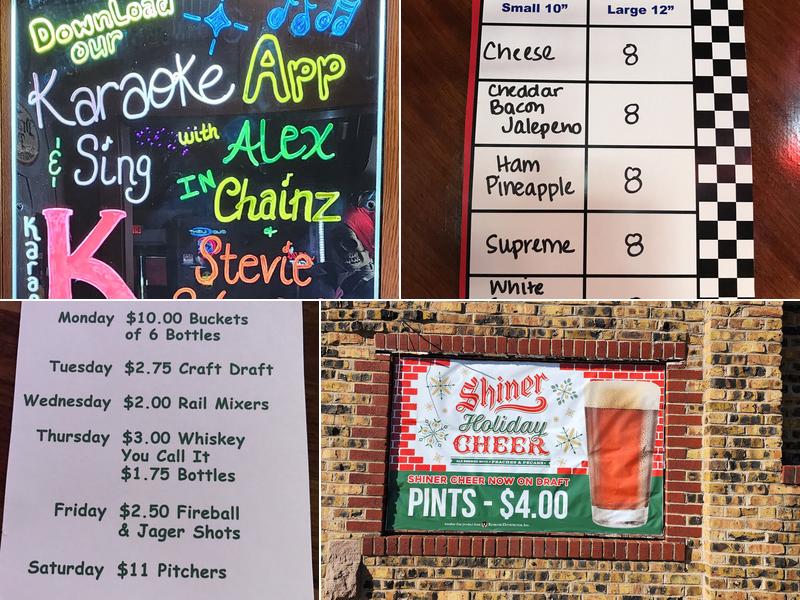 Download
our
Karaoke App
& Sing with Alex
IN Chainz
+
Stevie
K
Karao
Small 10" Large 12"
Cheese 8
Cheddar
Bacon
Jalepeno 8
Ham
Pineapple 8
Supreme 8
White
Monday $10.00 Buckets
of 6 Bottles
Tuesday $2.75 Craft Draft
Wednesday $2.00 Rail Mixers
Thursday $3.00 Whiskey
You Call It
$1.75 Bottles
Friday $2.50 Fireball
& Jager Shots
Saturday $11 Pitchers
Shiner
Holiday
CHEER
ALE BREWED WITH PEACHES & PECANS
SHINER CHEER NOW ON DRAFT
PINTS - $4.00